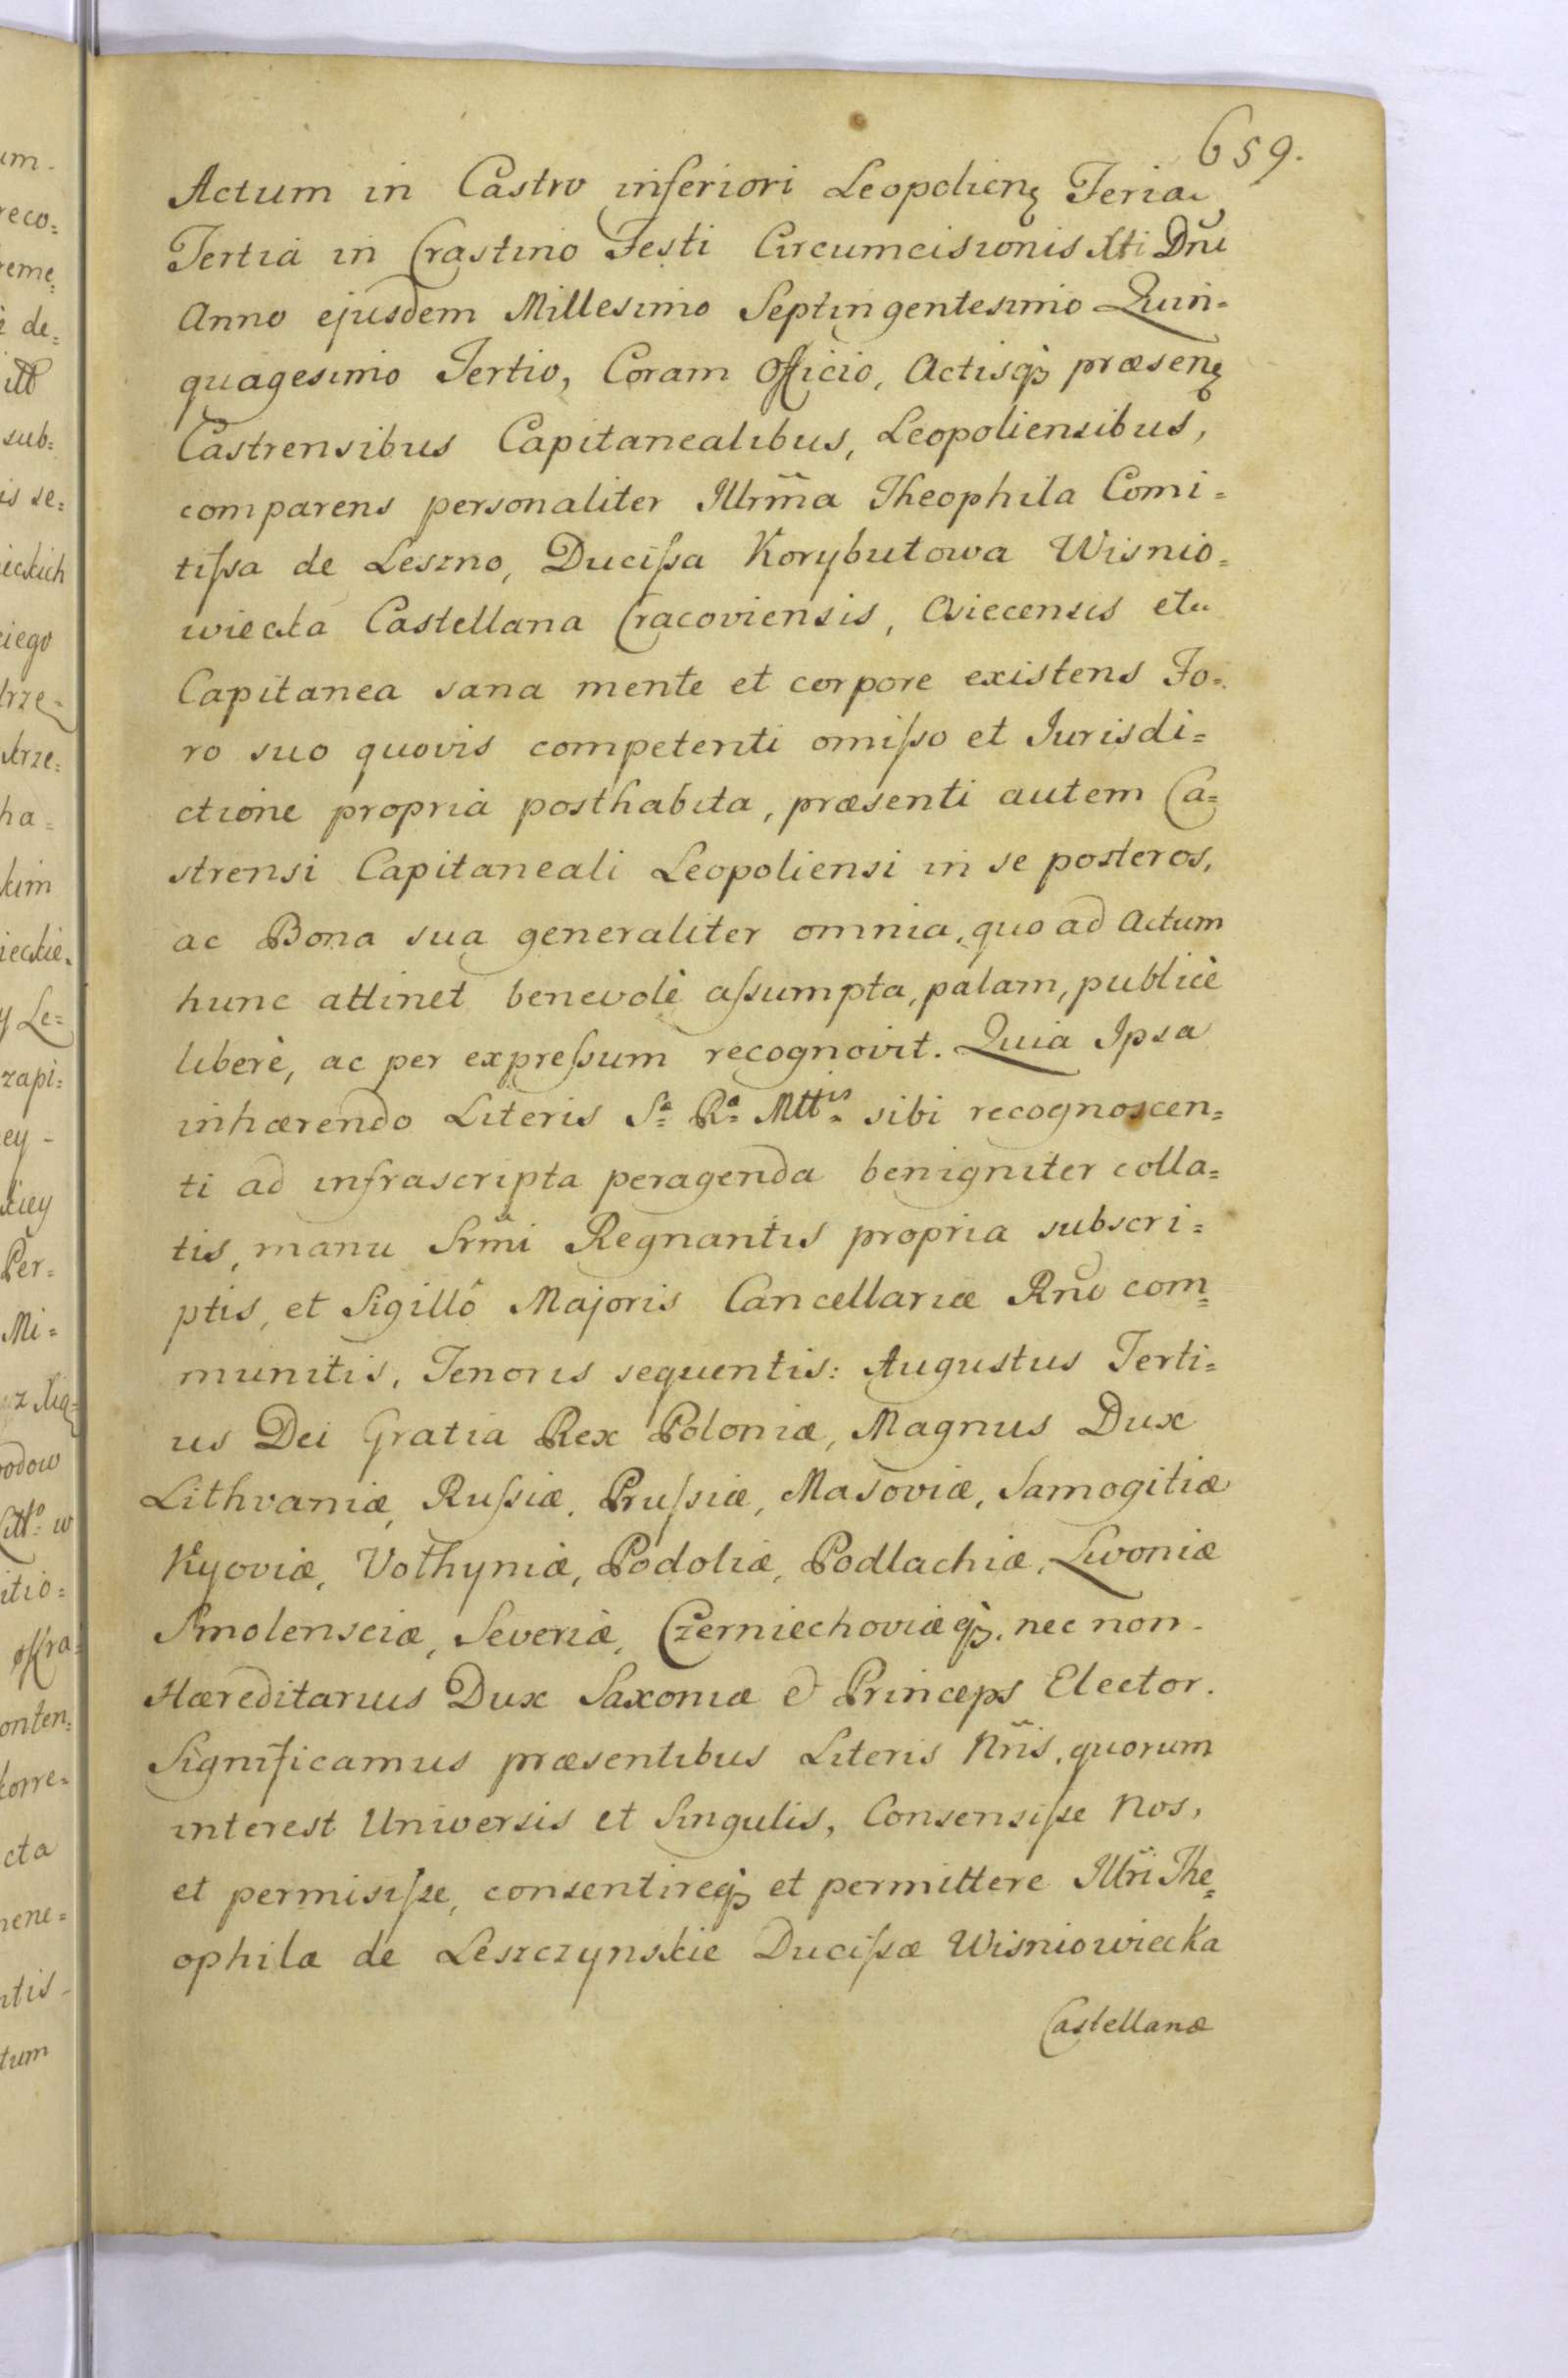 659.
Actum in Castro inferiori Leopolien̨ Feria
Tertiâ in Crastino Festi Circumcisionis Xti Dñi
Anno ejusdem Millesimo Septingentesimo Quin=
quagesimo Tertio, Coram Officio, Actisq́ȝ præsen̨
Castrensibus Capitanealibus, Leopoliensibus,
comparens personaliter Illrm̃a Theophila Comi=
tiſsa de Leszno, Duciſsa Korybutowa Wisnio=
wiecka Castellana Cracoviensis, Osiecensis etc
Capitanea sana mente et corpore existens Fo=
ro suo quovis competenti omiſso et Jurisdi=
ctione propriâ posthabita, præsenti autem Ca=
strensi Capitaneali Leopoliensi in se posteros,
ac Bona sua generaliter omnia, quo ad Actum
hunc attinet benevolè aſsumpta, palam, publicè
liberè, ac per expreſsum recognovit. Quia Ipsa
inhærendo Literis S.ᵃ R.ᵃ Mttⁱˢ sibi recognoscen=
ti ad infrascripta peragenda benigniter colla=
tis, manu Srm̃i Regnantis propria subscri=
ptis, et Sigillô Majoris Cancellariæ Rñi com=
munitis, Tenoris sequentis: Augustus Terti=
us Dei Gratia Rex Poloniæ, Magnus Dux
Lithvaniæ, Ruſsiæ, Pruſsiæ, Masoviæ, Samogitiæ
Kyoviæ, Volhyniæ, Podoliæ, Podlachiæ, Livoniæ
Smolensciæ, Severiæ, Czerniechoviæq́ȝ, nec non
Hæreditarius Dux Saxoniæ & Princeps Elector.
Significamus præsentibus Literis Nr̃is, quorum
interest Universis et Singulis, Consensiſse Nos,
et permisiſse, consentireq́ȝ et permittere Illr̃i The=
ophilæ de Leszczynskie Duciſsæ Wisniowiecka
Castellanæ